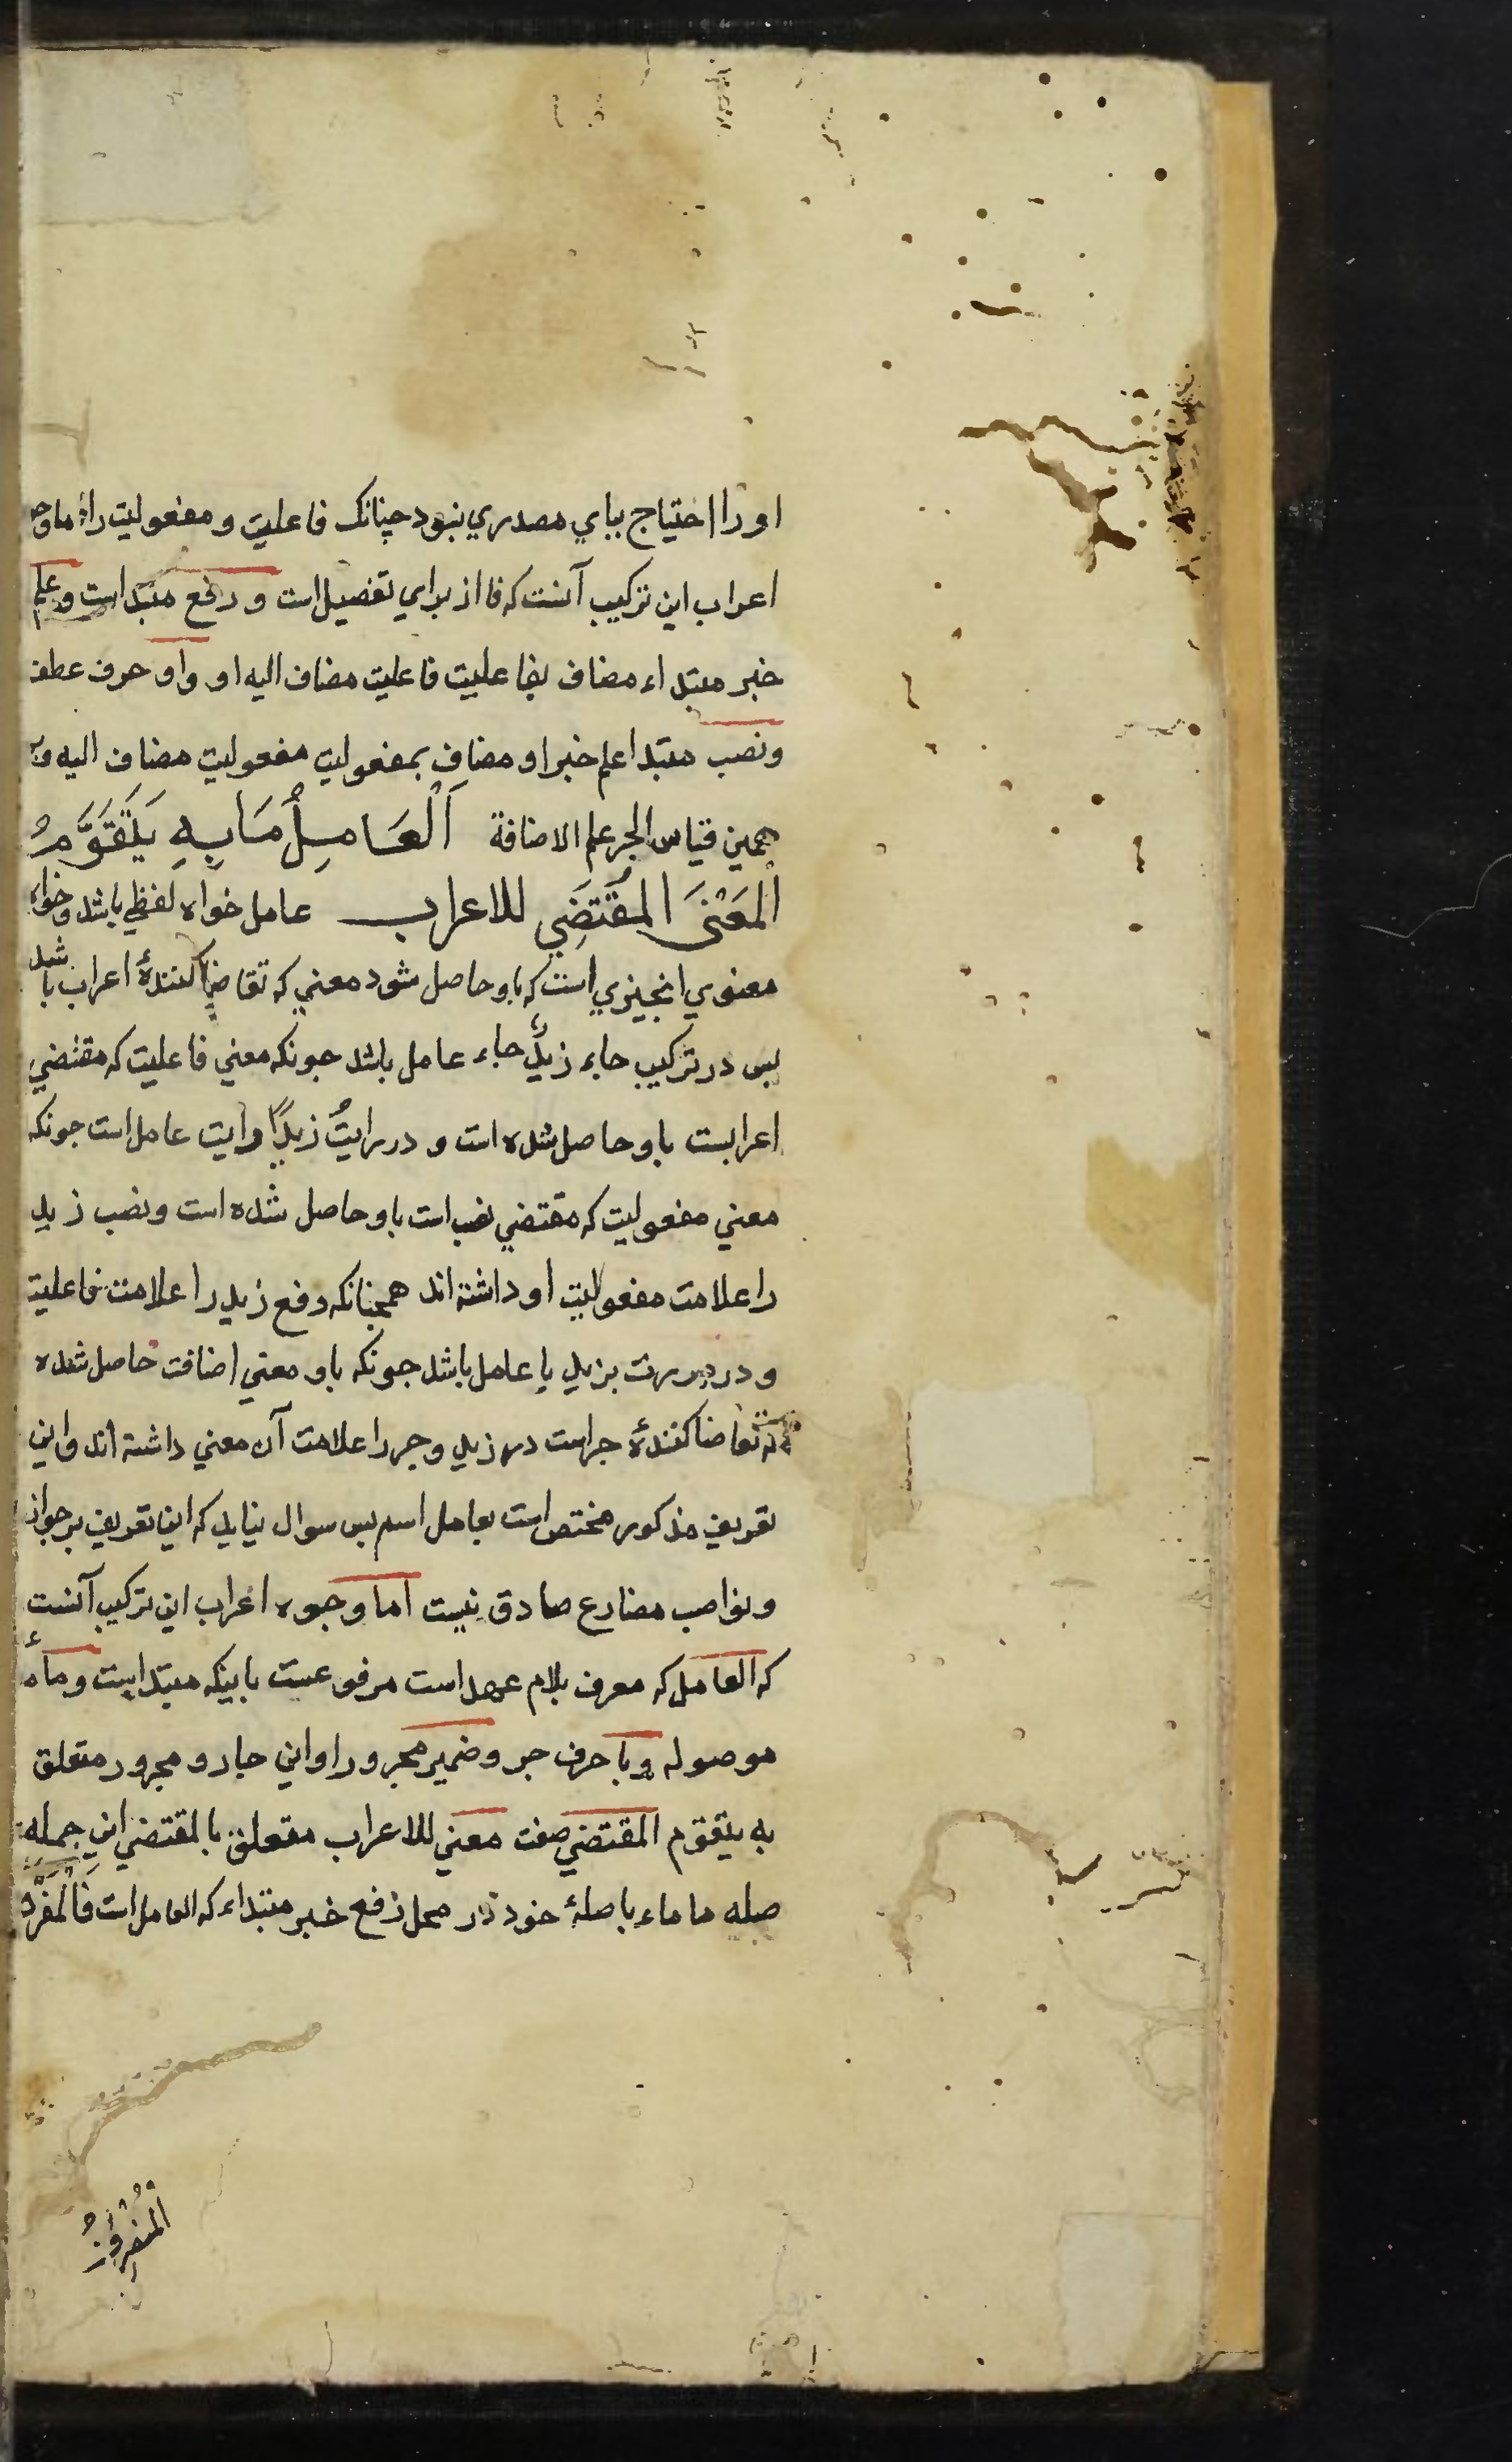 او را احتیاج بیاي مصدري نبود چنانک فاعلیت و مفعولیت را اما وجوه
اعراب این ترکیب آنست که فا از براي تفصیل است و رفع مبتدا است و علم
خبر مبتداء مضاف بفاعلیت فاعلیت مضاف الیه او واو حرف عطف
ونصب مبتدا علم خبر او مضاف بمفعولیت مفعولیت مضاف الیه و بر
همین قیاس الجر علم الاضافة اَلْعَامِلُ مَا بِهِ يَتَقَوَّمُ
اَلْمَعْنَى الْمُقْتَضِي للاعراب عامل خواه لفظي باشد وخواه
معنوي انچیزي است که باو حاصل شود معني که تقاضا کنندۀ اعراب باشد
بس در ترکیب جاء زیدٌ جاء عامل باشد جونکه معني فاعلیت که مقتضي
اعرابست باو حاصل شده است و در رایتُ زیدًا رایت عامل است جونکه
معني مفعولیت که مقتضي نصب است باو حاصل شده است ونصب زید
را علامت مفعولیت او داشته اند همچنانکه رفع زید را علامت فاعلیت
و در مررت بزید با عامل باشد جونکه باو معني اضافت حاصل شده
که تقاضا کنندۀ جر است در زید و جر را علامت آن معني داشته اند واین
تعریف مذکور مختص است بعامل اسم بس سوال نیاید که این تعریف بر جوازم
ونواصب مضارع صادق نیست اما وجوه اعراب این ترکیب آنست
که العامل که معرف بلام عهد است مرفوعست بابینکه مبتدا است وماء
موصوله و با حرف جر و ضمیر مجرور او این جار و مجرور متعلق
به یتقوم المقتضي صفت معني للاعراب متعلق بالمقتضي این جمله
صله ما ماء با صلۀ خود در محل رفع خبر مبتداء که العامل است فَالْمُفْرَدُ